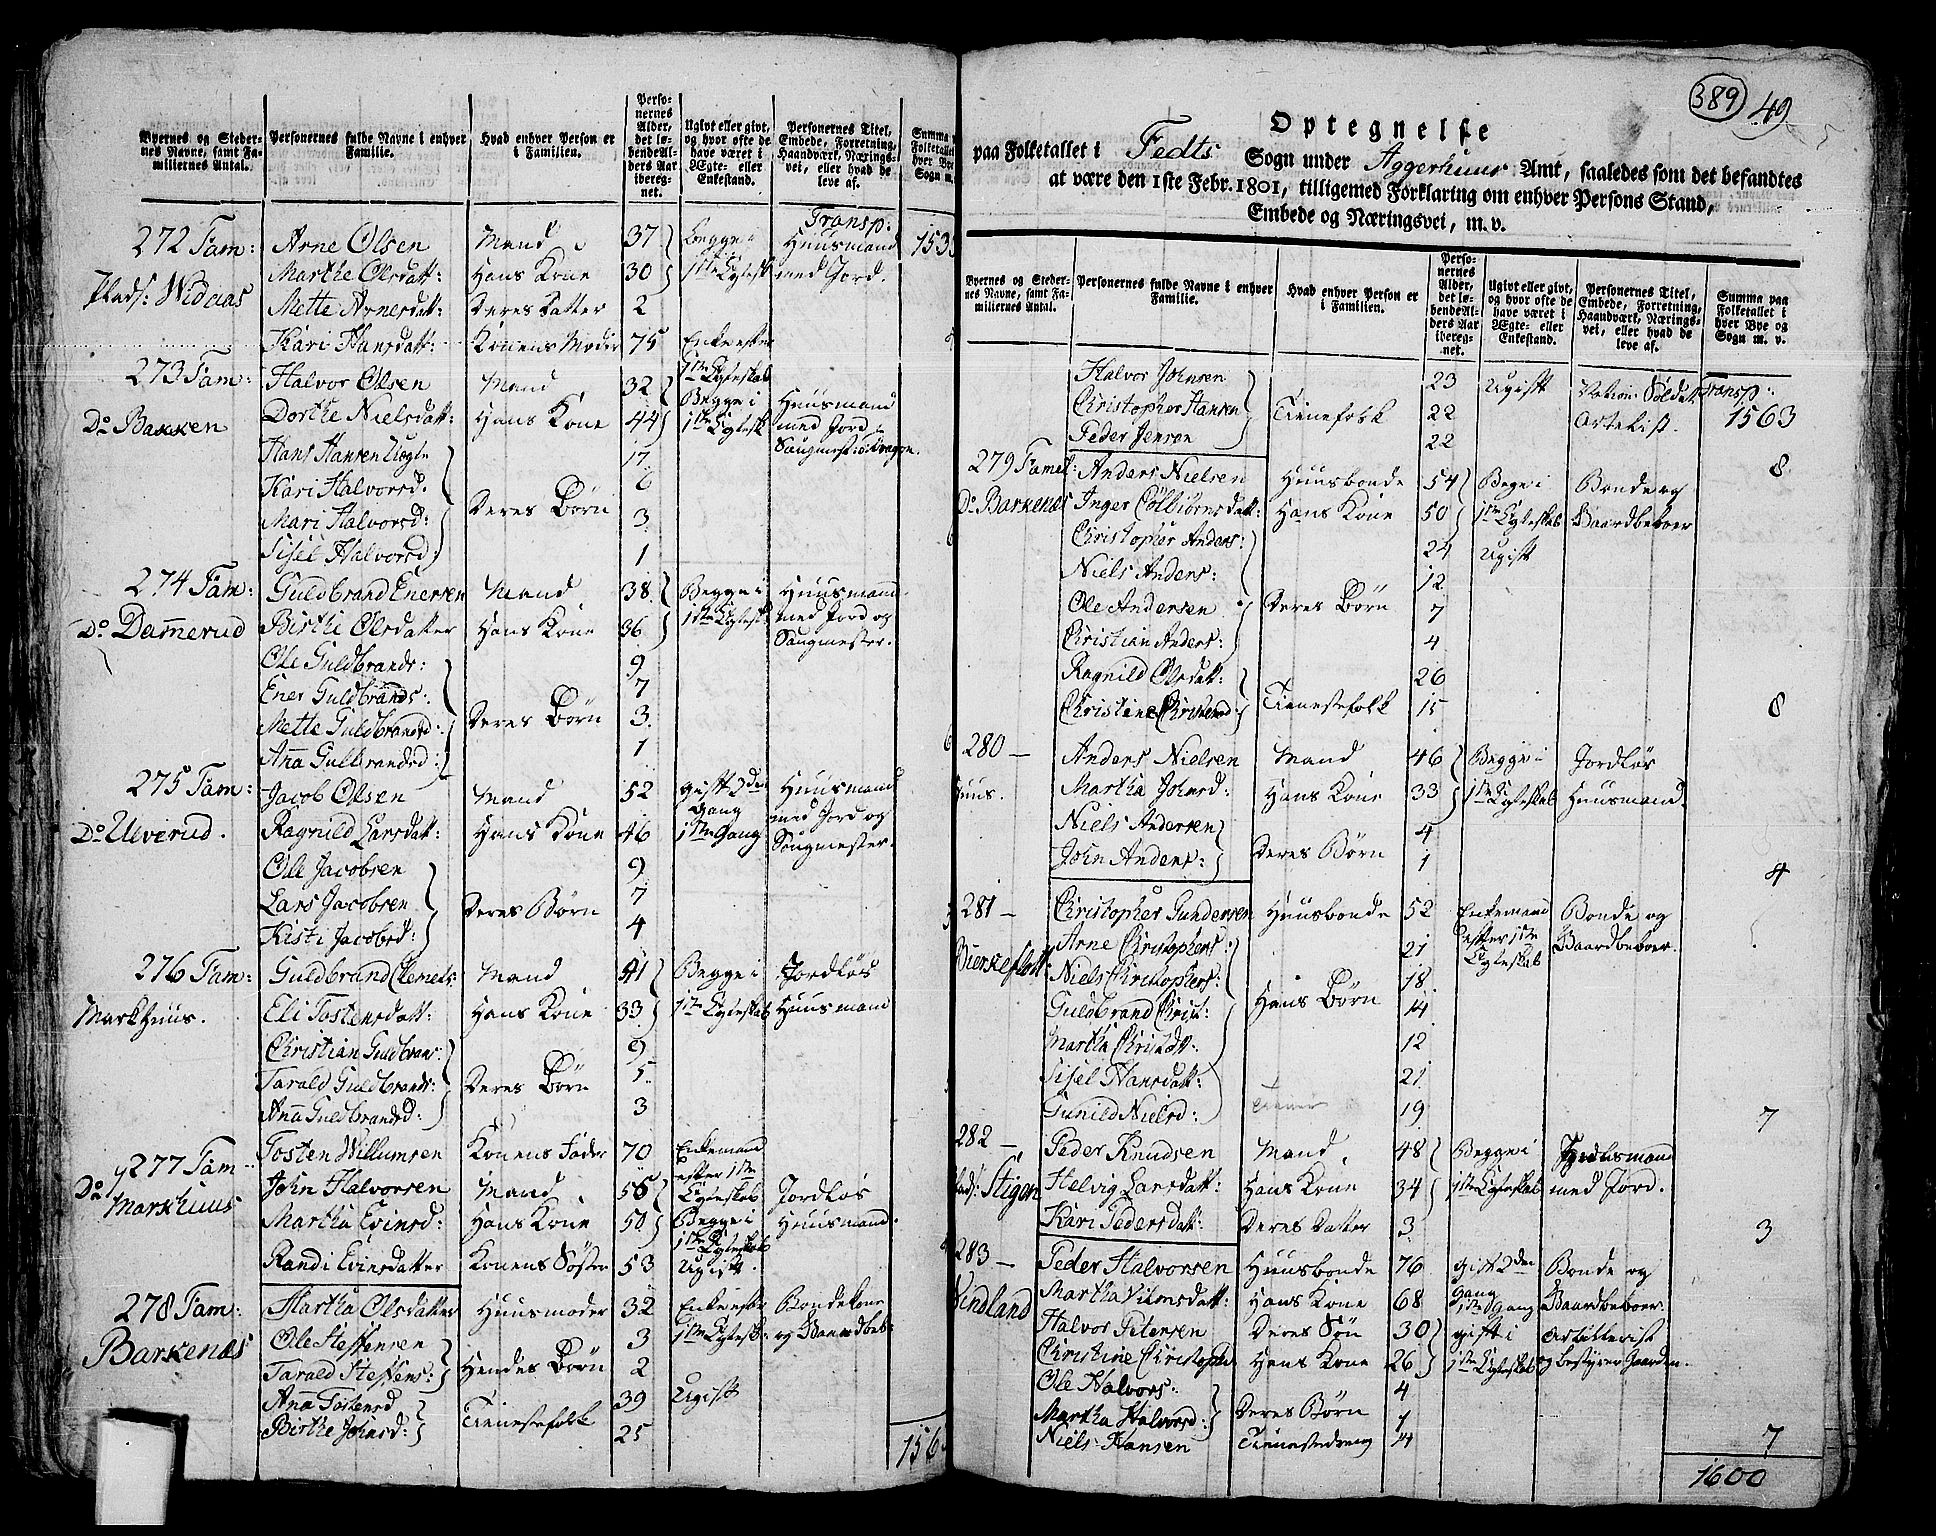 Byernes og Steder-
nes Navne, samt Fa-
miliernes Antal.
Personernes fulde Navne i enhver
Familie.
Hvad enhver Person er
i Familien.
Perso-
nernes
Alder,
det lø-
bende Al-
ders Aar
ibereg-
net.
Ugivt eller givt,
og hvor ofte de
have været i
Ægte- eller
Enkestand.
Personernes Titel,
Embede, Forretning,
Haandværk, Nærings-
vei, eller hvad de
leve af.
Transp:
272 Fam: Arne Olsen Mand 37 Begge i Huusmand
Marthe Olsdatt: Hans Kone 30 1ste Egtesk med Jord.
Plads: Widnas
Mette Arnesdatt: Deres Datter 2
Kari Hansdatt: Konens Moder 75 Enke efter
1ste Egteskab
273 Fam: Halvor Olsen Mand 32 Begge i Huusmand
Do Bakken Dorthe Nielsdatt: Hans Kone 44 1ste Egtesk med Jord
Hans Hansen Uegte 17
Kari Halvorsd. 6
Mari Halvorsd: Deres Børn 3
Sisel Halvorsd: 1
274 Fam: Guldbrand Enersen Mand 38 Begge i Huusmand
Do Damerud Birthe Olsdatter Hans Kone 36 1ste Egtesk: med Jord og
Saugmester.
Ole Guldbrands: 9
Ener Guldbrands: 7
Mette Guldbrandsd: Deres Børn 3
Ana Gulbrandsd: 1
275 Fam: Jacob Olsen Mand 52 gift 2den Huusmand
Gang med Jord og
Do Ulverud. Ragnild Larsdatt: Hans Kone 46 1ste Gang Saugmester.
Ole Jacobsen 9
Lars Jacobsen Deres Børn 7
Kisti Jacobsd: 4
276 Fam: Guldbrand Clemets: Mand 41 Begge i Jordløs
Markhuus. Eli Tostensdatt: Hans Kone 33 1ste Egteskab Huusmand
Christian Guldbran: 9
Tarald Guldbrands: Deres Børn 5
Ana Guldbrandsd: 3
Tosten Willumsen Konens Fader 70 Enkemand
efter 1ste
Egteskab
277 Fam
Do Markhuus
John Halvorsen Mand 56 Jordløs
Martha Evinsd: Hans Kone 50 Begge i Huusmand.
1ste Egteskab
Randi Evinsdatter Konens Søster 53 Ugift.
278 Fam: Martha Olsdatter Huusmoder 32 Enke efter Bondekone
Barkenæs Ole Steffensen 3 1ste Egtesk: og Gaardbeb:
Tarald Steffens: Hendes Børn 2
Ana Tostensd 39 Ugift
Birthe Johnsd: Tienestefolk 25
389
49
Optegnelse
paa Folketallet i Fedts Sogn under Aggerhuus Amt, saaledes som det befandtes
at være den 1ste Febr. 1801, tilligemed Forklaring om enhver Persons Stand,
Embede og Næringsvei, m. v.
Byernes og Steder-
nes Navne, samt Fa-
miliernes Antal.
Personernes fulde Navne i enhver
Familie.
Hvad enhver Person er
i Familien.
Perso-
nernes
Alder,
det lø-
bende Al-
ders Aar
ibereg-
net.
Ugivt eller givt,
og hvor ofte de
have været i
Ægte- eller
Enkestand.
Personernes Titel,
Embede, Forretning,
Haandværk, Nærings-
vei, eller hvad de
leve af.
Summa paa
Folketallet i
hver Bye og
Sogn m. v.
Halvor Johnsen 23 Ugift Nation: Soldat Transp:
Christopher Hansen Tienefolk 22 1563
Peder Jensen 22
279 Famil: Anders Nielsen Huusbonde 54 Begge i Bonde og 8
Do Barkenæs Inger Colbiørnsdatt: Hans Kone 50 1ste Egteskab Gaardbeboer
Christopher Anders: 24 Ugift
Niels Anders: 12
Ole Andersen Deres Børn 7
Christian Anders: 4
Ragnild Olsdatt: 26
Tienestefolk 15 8
280 — Anders Nielsen Mand 46 Begge i Jordløs
Huus. Martha Johnsd: Hans Kone 33 1ste Egteskab Huusmand.
Niels Andersen 4
John Anders: Deres Børn 1 4
281 — Christopher Gundersen Huusbonde 52 Enkemand Bonde og
Arne Christophers: 21 efter 1ste Gaardbeboer.
Egteskab
Bierkeflott Niels Christophers: 18
Guldbrand Christ: Hans Børn 14
Martha Christdt: 12
Sisel Hansdatt: 21
Gunild Nielsd: 19 7
282 — Peder Knudsen Mand 48 Begge i Huusmand
Stigen Helvig Larsdatt: Hans Kone 34 1ste Egteskab med Jord.
Kari Pedersdatt: Deres Datter 3 3
283 — Peder Halvorsen Huusbonde 76 gift 2den Bonde og
Gang
Windland Martha Nilsdatt: Hans Kone 68 1ste Gang Gaardbeboer.
Halvor Petersen Deres Søn 30 gift i Artillerist
Christine Christoph: Hans Kone 26 1ste Egteskab og bestyrer Gaarden.
Ole Halvors: 4
Martha Halvorsd: Deres Børn 1
Niels Hansen Tienestedreng 14 7
1600